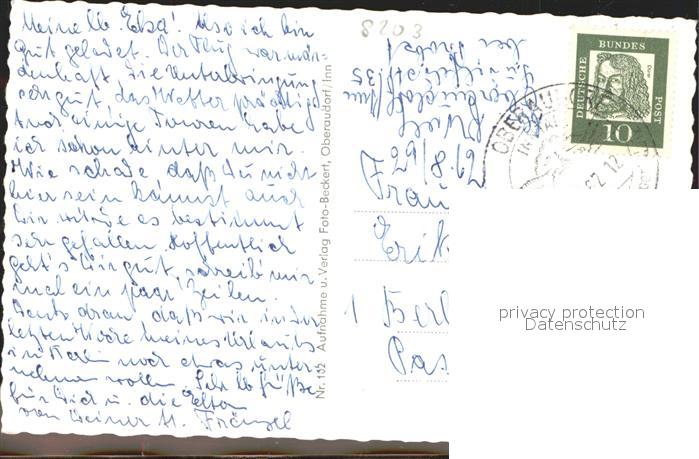 Meine lb. Elsa! Also ich bin
gut gelandet. Der Flug war mär-
chenhaft die Unterbringung
sehr gut, das Wetter prächtig
und einige Touren habe
ich schon hinter mir.
Wie schade daß Du nicht
hier sein kannst auch
Dir würde es bestimmt
sehr gefallen. Hoffentlich
geht's Dir gut, schreib' mir
mal ein paar Zeilen.
Denk dran daß wir in der
letzten Woche meines Urlaubs
in noch etwas unter-
nehmen wollen. Sehr lb Grüße
für Dich u. die Eltern
von Deiner Fränzel
Nr. 152 Aufnahme u. Verlag Foto-Beckert, Oberaudorf/Inn
8203
Oberaudorf/Inn
29/8/62
Frau
Erik
1 Berl
Pas
DEUTSCHE BUNDES POST
Dürer
10
62.12
privacy protection
Datenschutz